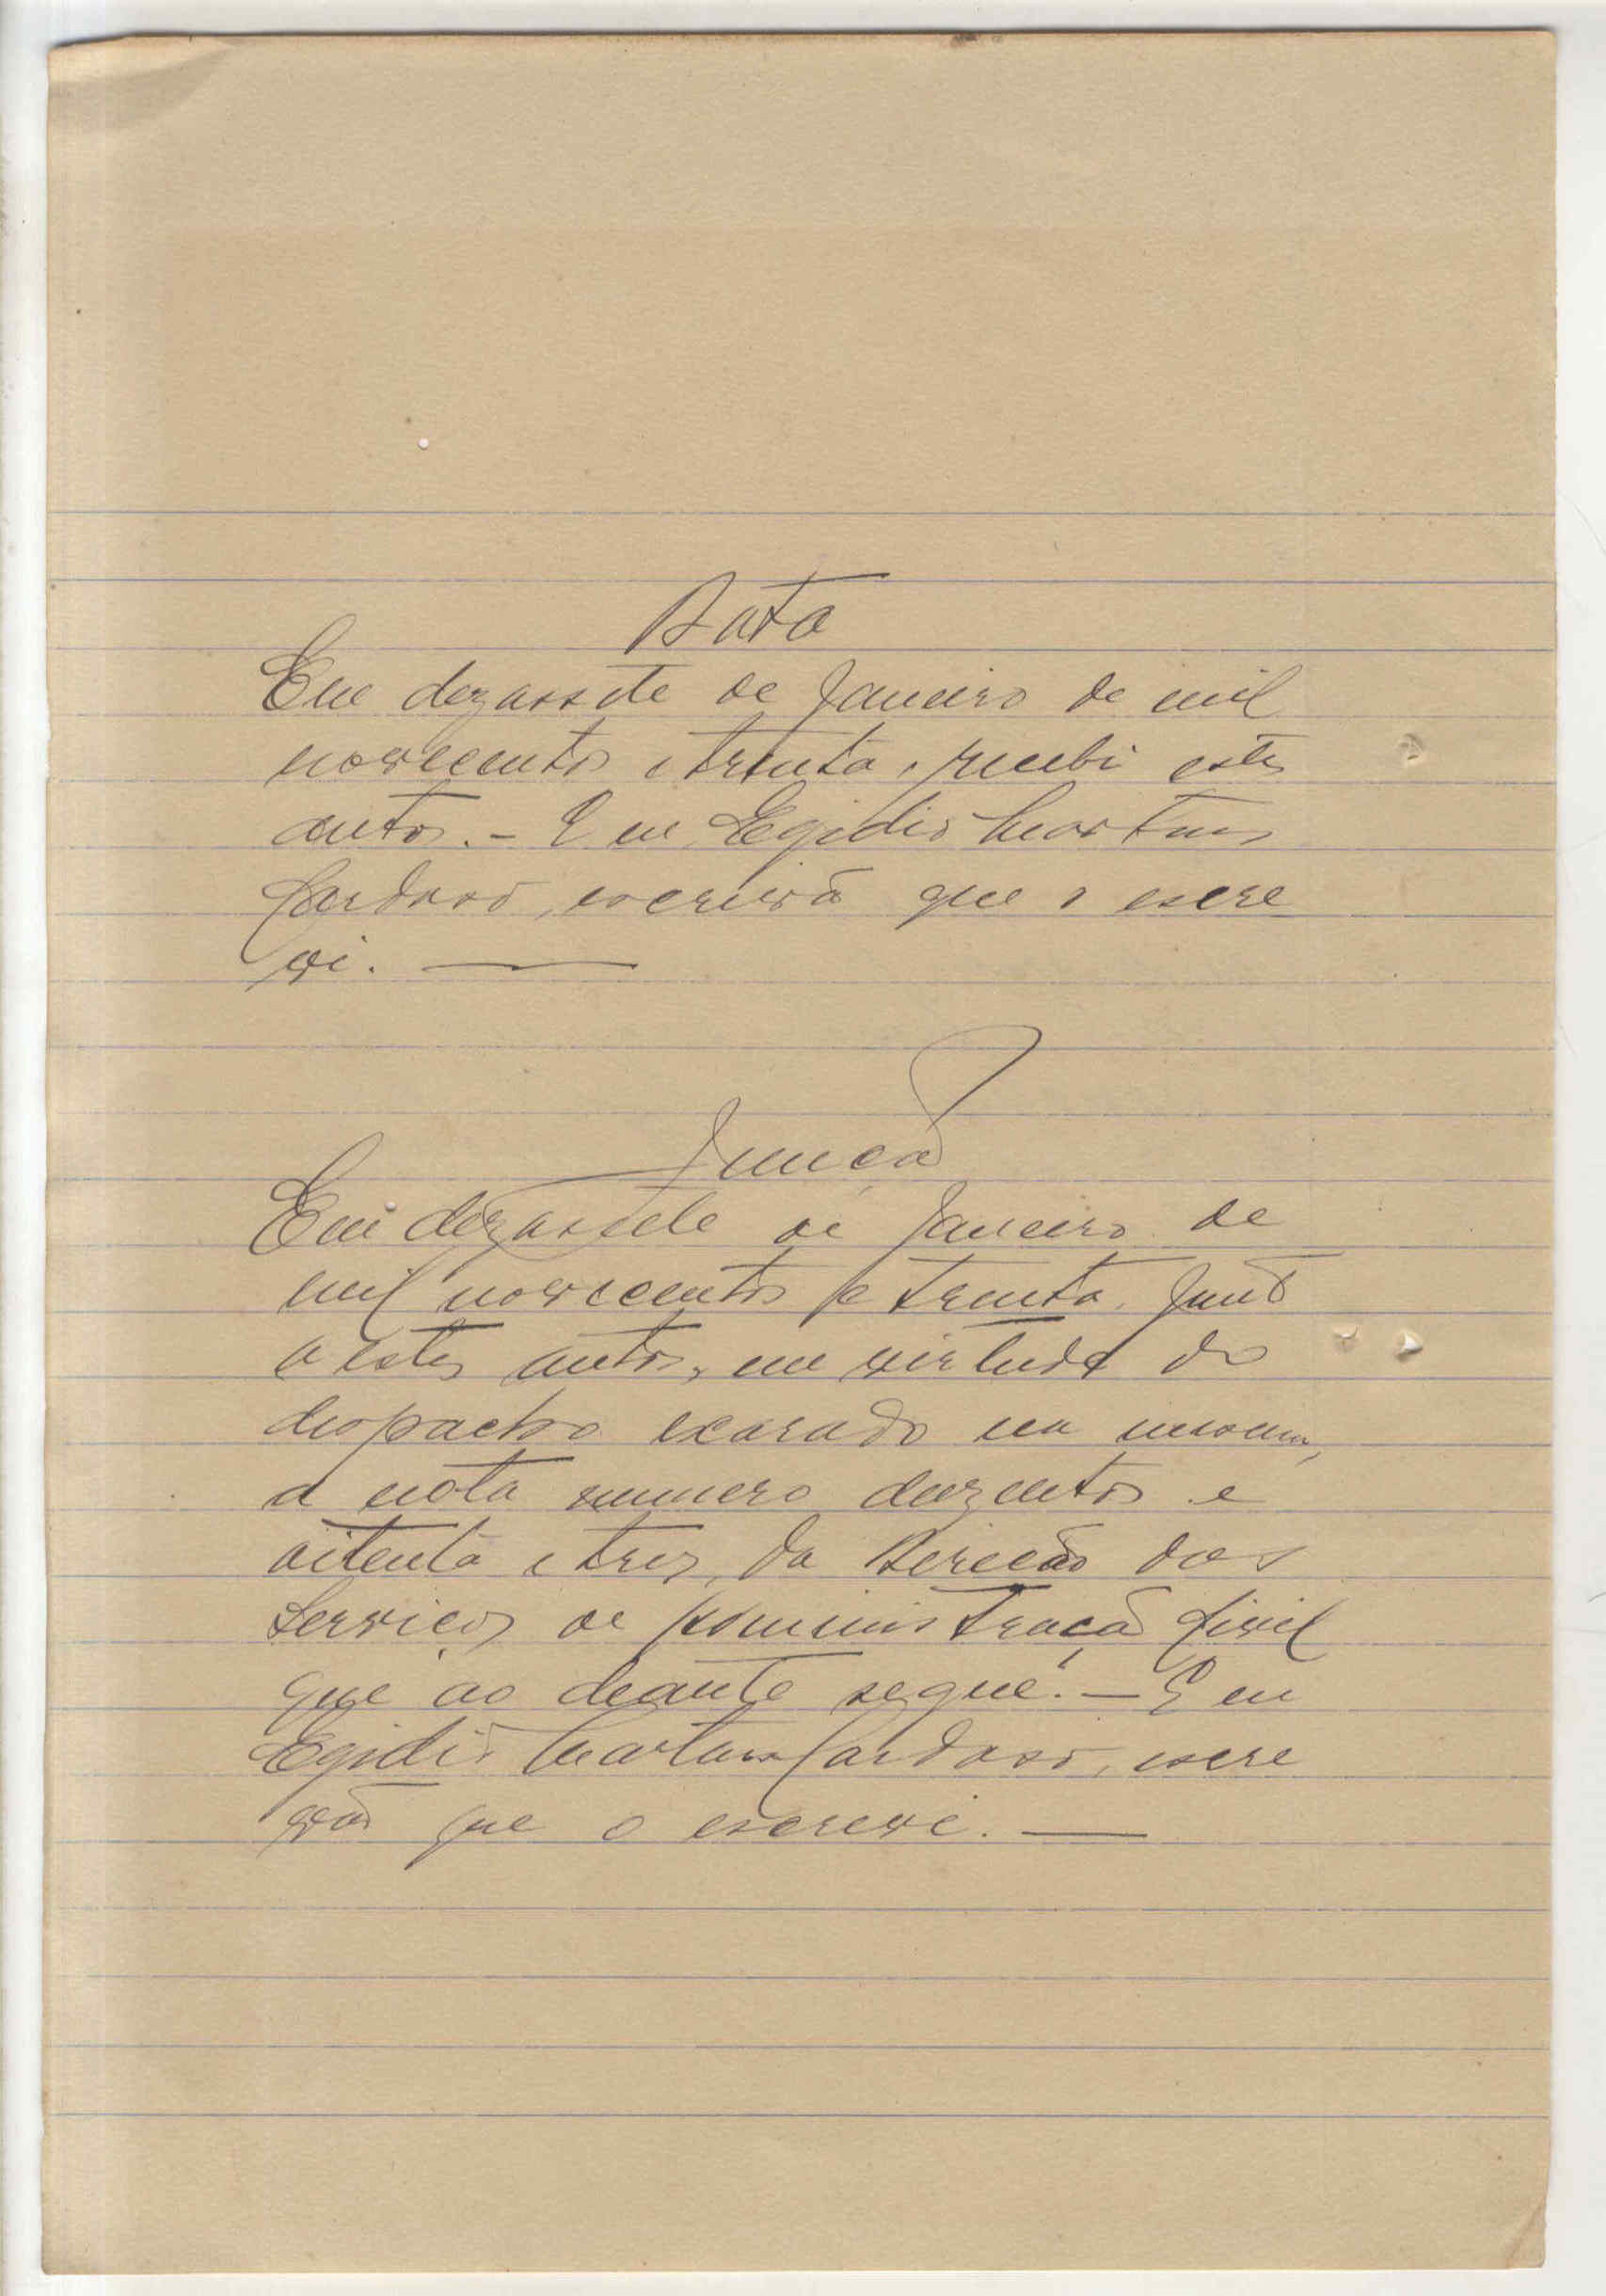 Data
Em dezassete de Janeiro de mil
novecentos e trinta, recebi estes
autos. - E eu, Egidio Martins
Cardoso, escrivão que o escre
vi. ———
Junção
Em dezassete de Janeiro de
mil novecentos e trinta, junto
a estes autos, em virtude do
despacho exarado na mesma,
a nota numero duzentos e
oitenta e tres, da Direcção dos
Serviços de Administração Civil
que ao deante segue. — E eu
Egidio Martins Cardoso, escre
vão que o escrevi. ——